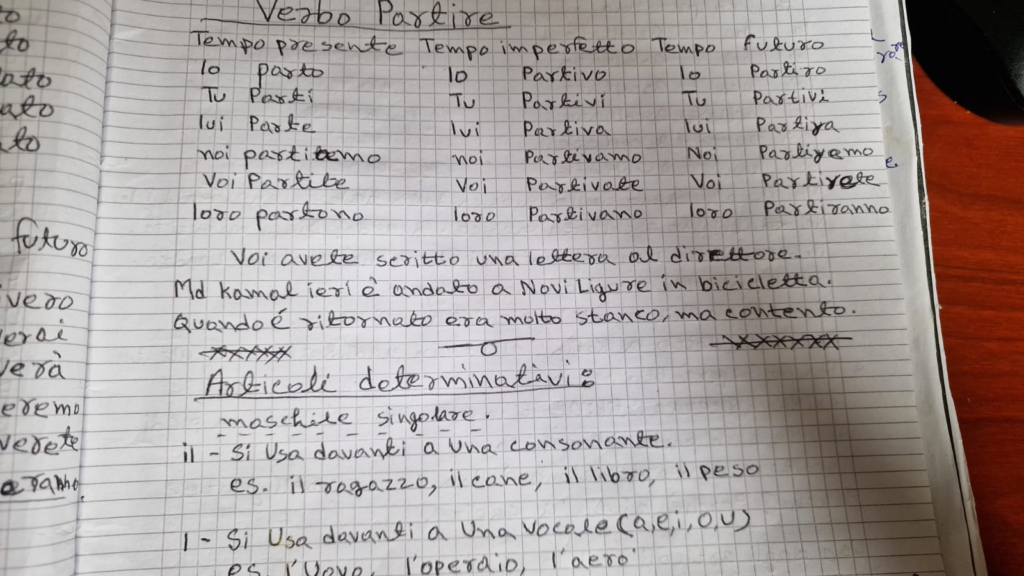 Verbo Partire
Tempo presente Tempo imperfetto Tempo futuro
Io parto Io Partivo Io Partiro
Tu Parti Tu Partivi Tu Partivi
lui Parte lui Partiva lui Partira
noi partiamo noi Partivamo Noi Partiremo
Voi Partite Voi Partivate Voi Partirete
loro partono loro Partivano loro Partiranno
Voi avete scritto una lettera al direttore.
Md Kamal ieri è andato a Novi Ligure in bicicletta.
Quando é ritornato era molto stanco, ma contento.
Articoli determinativi:
maschile singolare.
il - Si Usa davanti a una consonante.
es. il ragazzo, il cane, il libro, il peso
l - Si Usa davanti a Una vocale (a,e,i,o,u)
es l'Uovo, l'operaio, l'aero
to
to
ato
ato
to
futuro
vero
verai
verà
eremo
verete
eranno.